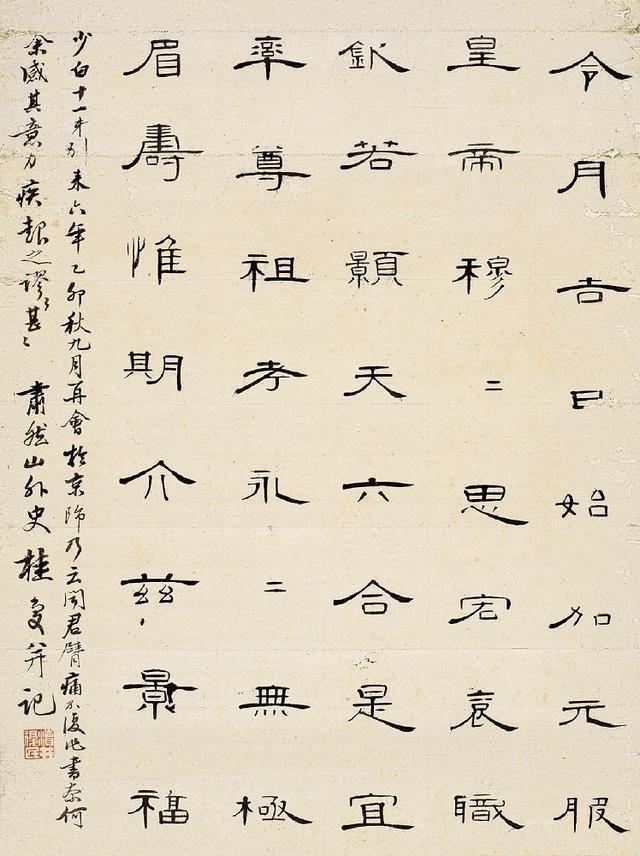 令月吉日始加元服
皇帝穆二思宏袞職
欽若顥天六合是宜
率尊祖考永二無極
眉壽惟期介茲景福
少白十一年別來六年乙卯秋九月再會於京師乃云聞君臂痛不復能書奈何
余感其意力疾報之謬々甚々 肅然山外史桂復并記